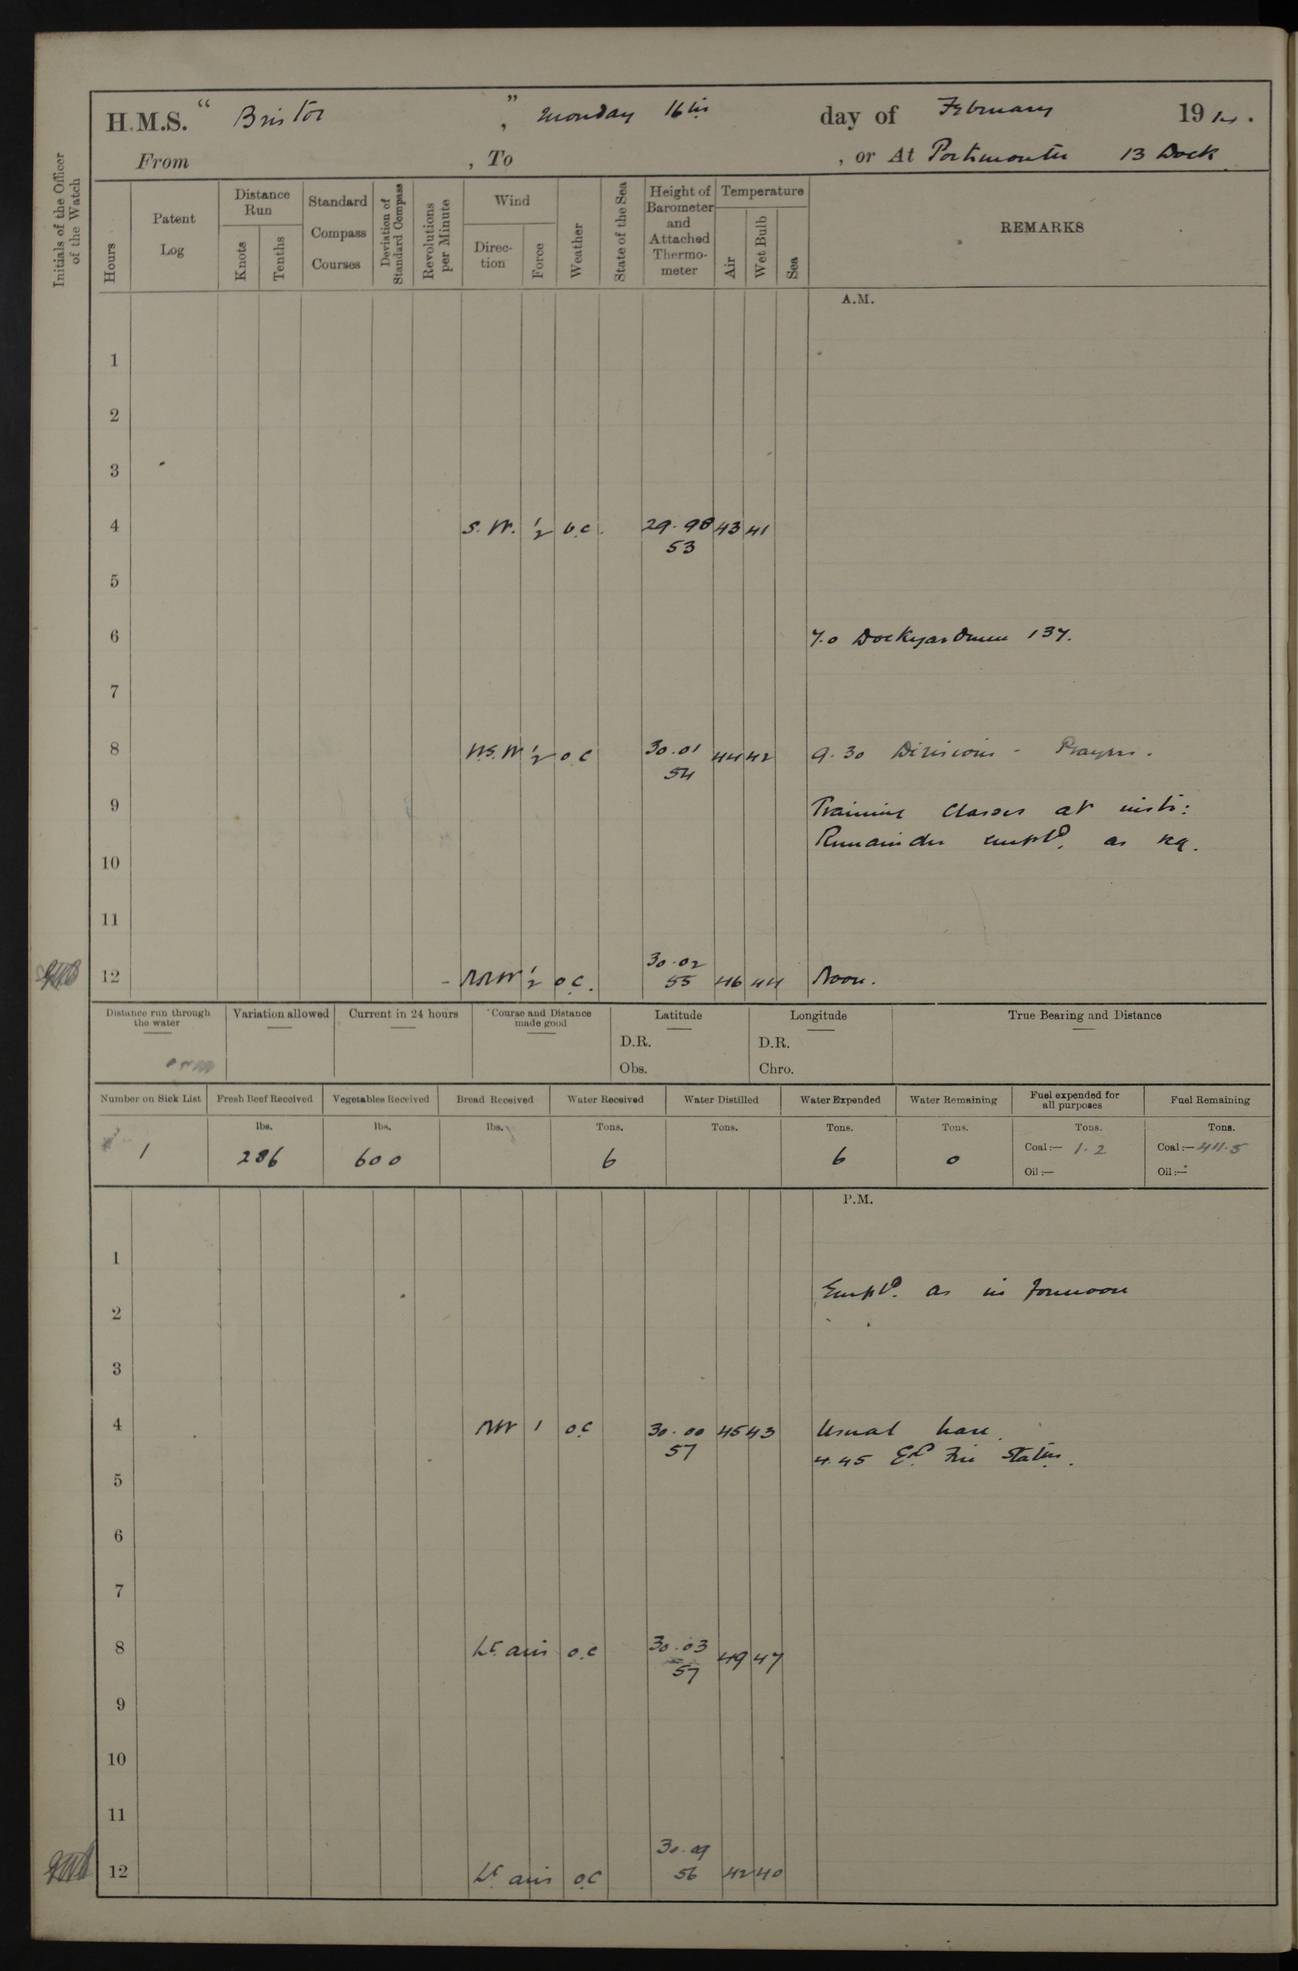 H.M.S. " Bristol ", Monday 16th day of February 1914.
From , To , or At Portsmouth 13 Dock
Initials of the Officer of the Watch
Hours
Patent Log
Distance Run
Knots
Tenths
Standard Compass Courses
Deviation of Standard Compass
Revolutions per Minute
Wind
Direction
Force
Weather
State of the Sea
Height of Barometer and Attached Thermometer
Temperature
Air
Wet Bulb
Sea
REMARKS
A.M.
1
2
3
4 S.W. 1/2 b.c. 29.98 43 41
53
5
6 7.0 Dockyardmen 137.
7
8 W.S.W 1/2 o.c 30.01 44 42 9.30 Divisions - Prayers.
54
9 Training Classes at instr:
Remainder empld. as req.
10
11
30.02
12 NNW 1/2 o.c. 55 46 44 Noon.
Distance run through the water
Variation allowed
Current in 24 hours
Course and Distance made good
Latitude
D.R.
Obs.
Longitude
D.R.
Chro.
True Bearing and Distance
Number on Sick List Fresh Beef Received Vegetables Received Bread Received Water Received Water Distilled Water Expended Water Remaining Fuel expended for all purposes Fuel Remaining
lbs. lbs. lbs. Tons. Tons. Tons. Tons. Tons. Tons.
1 286 600 6 6 0 Coal:— 1.2 Coal:— 411.5
Oil:— Oil:—
P.M.
1
Empld. as in forenoon
2
3
4 NW 1 o.c 30.00 45 43 Usual leave.
57 4.45 Exd. Fire Statns.
5
6
7
8 Lt. airs o.c 30.03 49 47
57
9
10
11
30.09
12 Lt. airs o.c 56 42 40